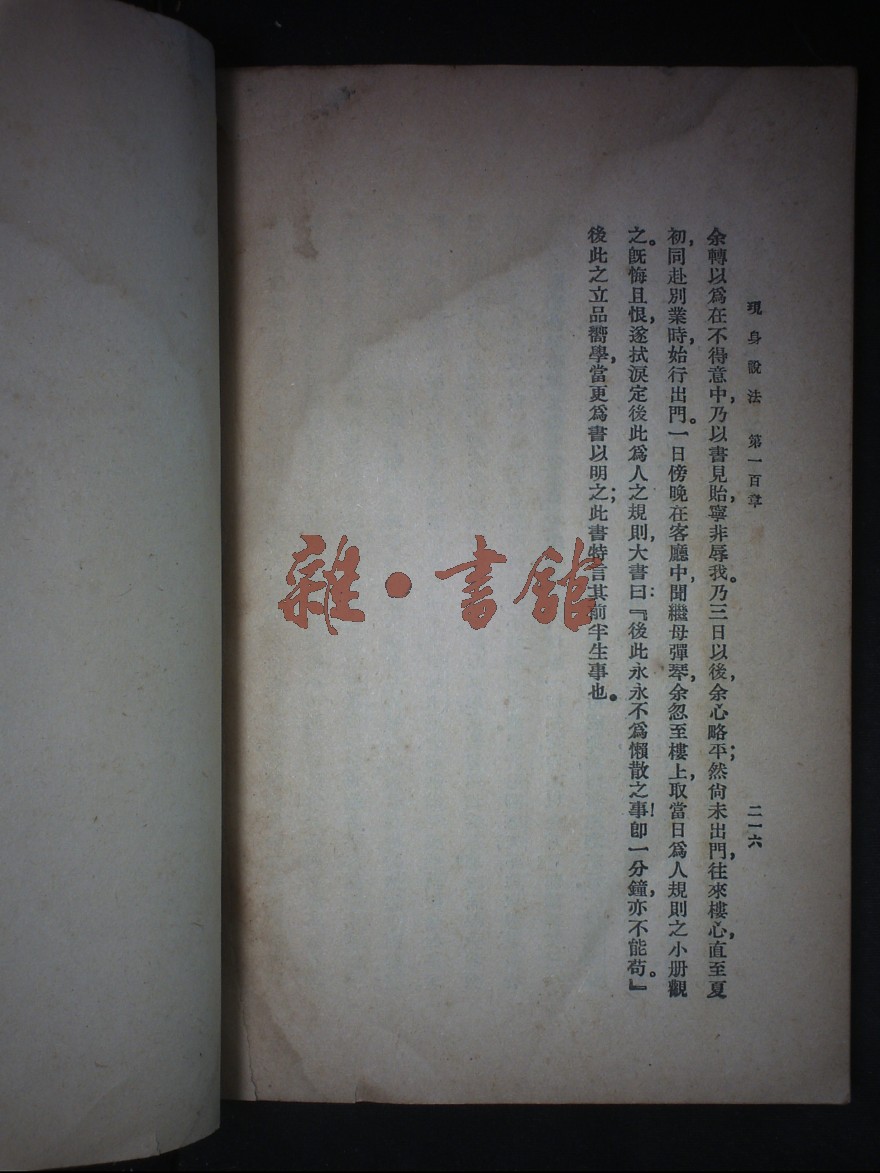 現身說法　第一百章
二一六
余轉以爲在不得意中，乃以書見貽，寧非辱我。乃三日以後，余心略平；然尙未出門，往來樓心，直至夏
初，同赴別業時，始行出門。一日傍晚在客廳中，聞繼母彈琴，余忽至樓上，取當日爲人規則之小册觀
之。旣悔且恨，遂拭淚定後此爲人之規則，大書曰：『後此永永不爲懶散之事！卽一分鐘，亦不能苟。』
後此之立品嚮學，當更爲書以明之；此書特言其前半生事也。
雜·書館